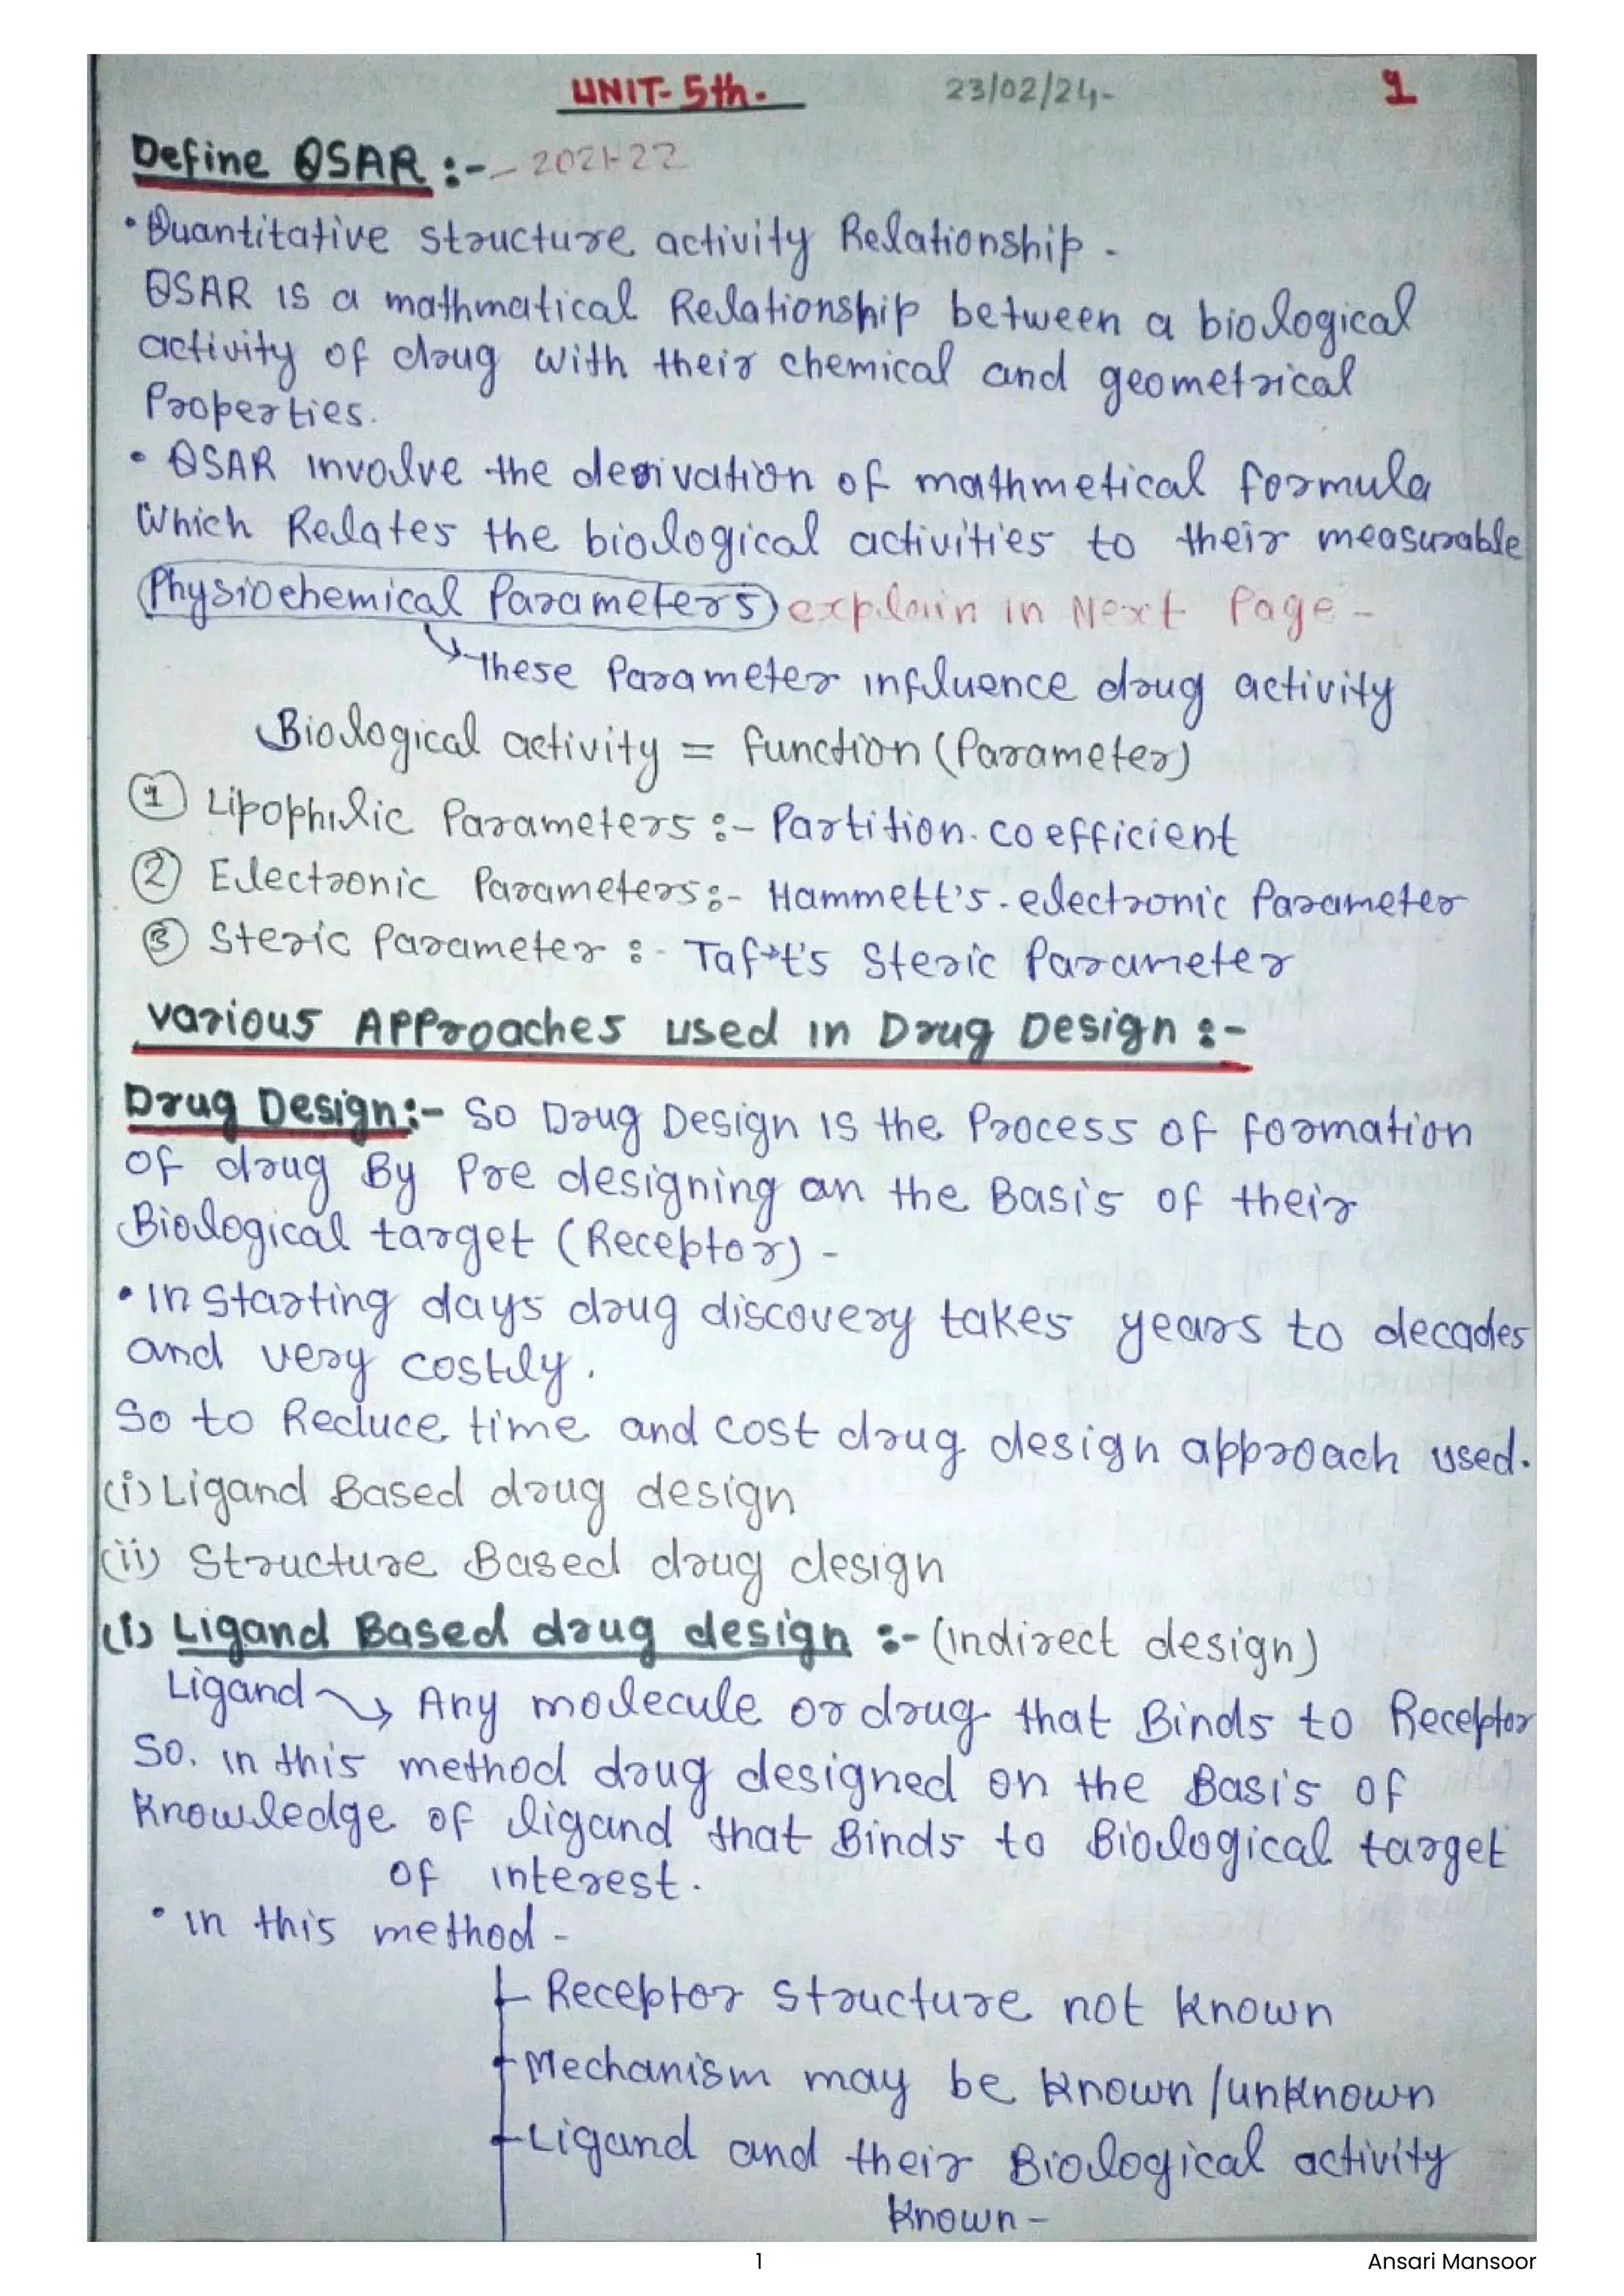 UNIT- 5th. 23/02/24- 1
Define QSAR :- - 2021-22
• Quantitative structure activity Relationship -
QSAR is a mathmatical Relationship between a biological
activity of drug with their chemical and geometrical
Properties.
• QSAR involve the derivation of mathmetical formula
Which Relates the biological activities to their measurable
Physiochemical Parameters explain in Next Page -
These Parameter influence drug activity
Biological activity = function (Parameter)
① Lipophilic Parameters :- Partition. coefficient
② Electronic Parameters :- Hammett's. electronic Parameter
③ Steric Parameter :- Taft's Steric Parameter
Various APProaches used in Drug Design :-
Drug Design:- So Drug Design is the Process of formation
of drug By Pre designing on the Basis of their
Biological target (Receptor) -
• In starting days drug discovery takes years to decades
and very costly.
So to Reduce time and cost drug design approach used.
(i) Ligand Based drug design
(ii) Structure Based drug design
(i) Ligand Based drug design :- (indirect design)
Ligand → Any molecule or drug that Binds to Receptor
So. in this method drug designed on the Basis of
Knowledge of ligand that Binds to Biological target
of interest.
• in this method -
Receptor structure not known
Mechanism may be known /unknown
Ligand and their Biological activity
known -
1 Ansari Mansoor